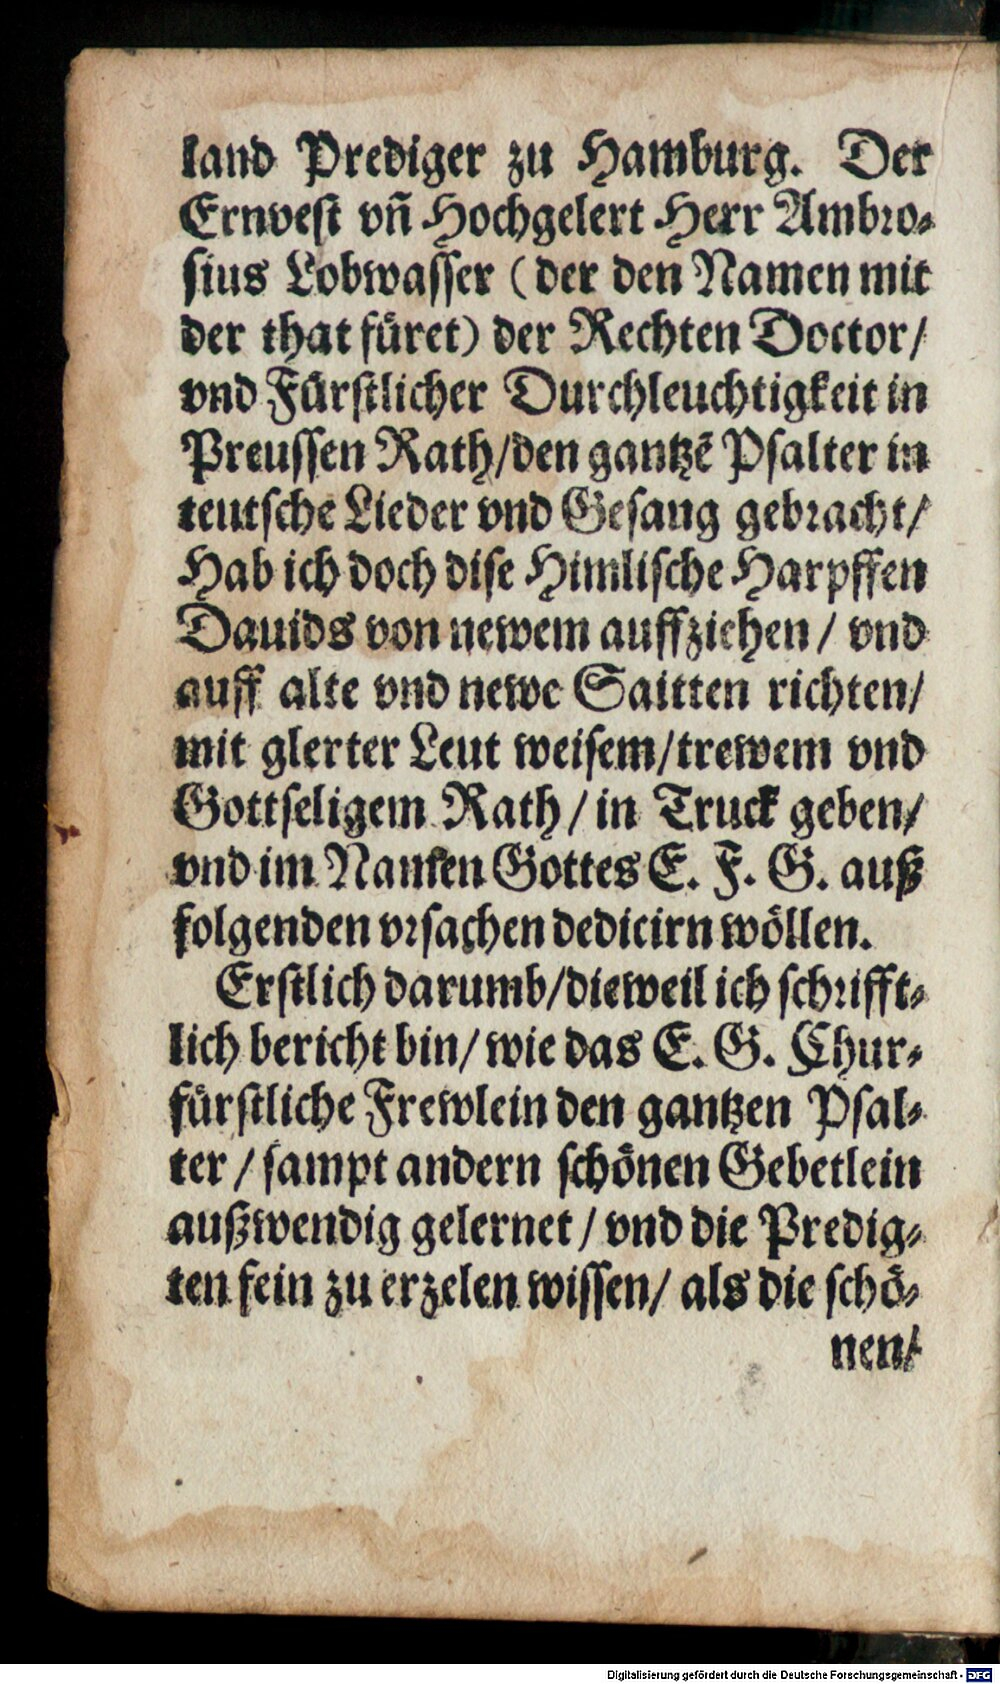 land Prediger zu Hamburg. Der
Ernvest vn̄ Hochgelert Herr Ambro⸗
sius Lobwasser (der den Namen mit
der that füret) der Rechten Doctor/
vnd Fürstlicher Durchleuchtigkeit in
Preussen Rath/den gantzē Psalter in
teutsche Lieder vnd Gesang gebracht/
Hab ich doch dise Himlische Harpffen
Dauids von newem auffziehen/ vnd
auff alte vnd newe Saitten richten/
mit glerter Leut weisem/trewem vnd
Gottseligem Rath/ in Truck geben/
vnd im Namen Gottes E. F. G. auß
folgenden vrsachen dedicirn wöllen.
Erstlich darumb/dieweil ich schrifft⸗
lich bericht bin/ wie das E. G. Chur⸗
fürstliche Frewlein den gantzen Psal⸗
ter/ sampt andern schönen Gebetlein
außwendig gelernet/ vnd die Predig⸗
ten fein zu erzelen wissen/ als die schö⸗
nen/
Digitalisierung gefördert durch die Deutsche Forschungsgemeinschaft - DFG